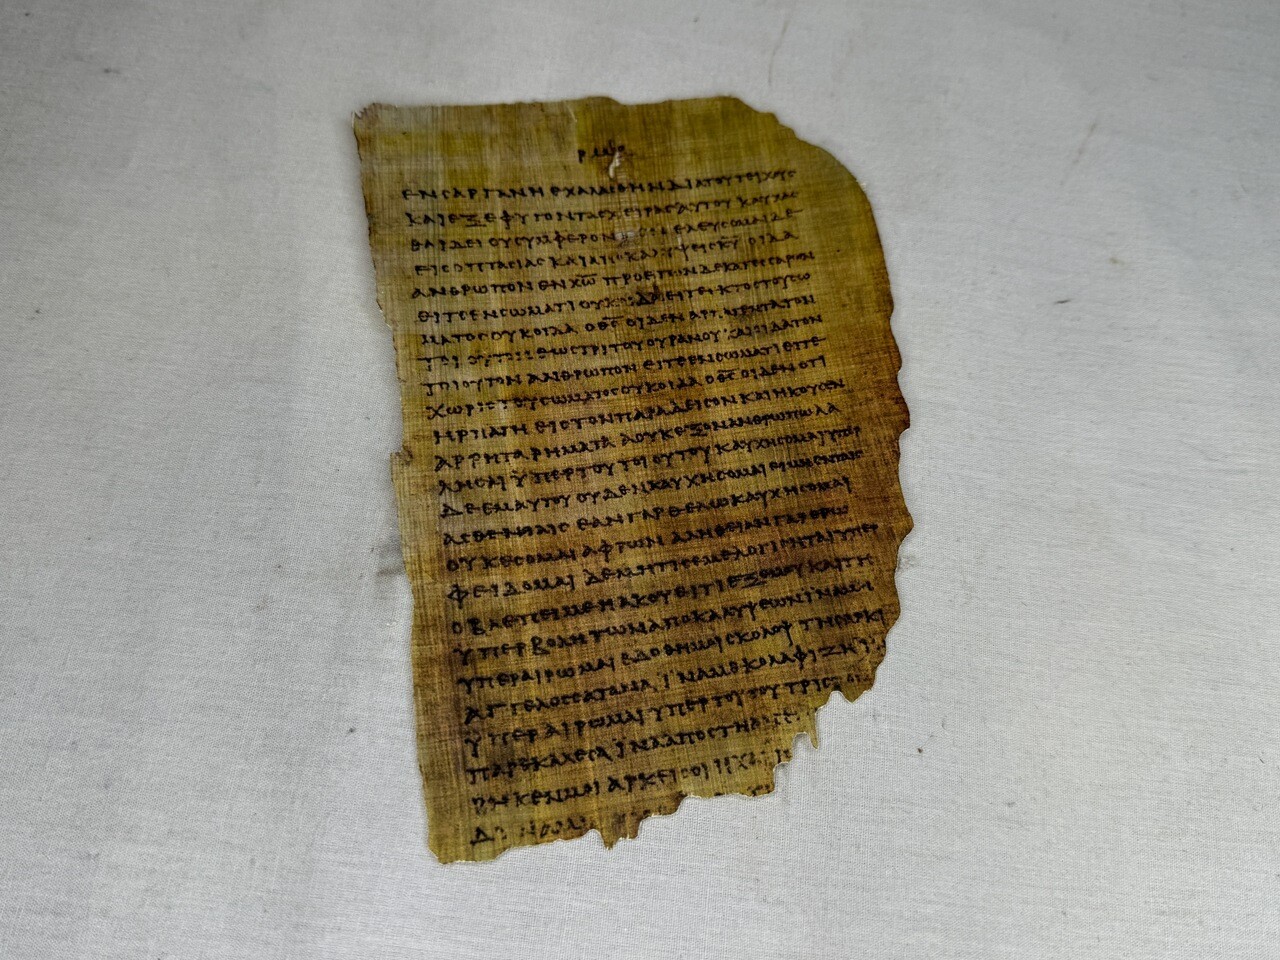 ΕΝϹΑΡΓΑΝΗΕΧΑΛΑϹΘΗΝΔΙΑΤΟΥΤΕΙΧΟΥϹ
ΚΑΙΕΞΕΦΥΓΟΝΤΑϹΧΕΙΡΑϹΑΥΤΟΥΚΑΥΧΑϹ
ΘΑΙΔΕΙΟΥϹΥΜΦΕΡΟΝ ΕΛΕΥϹΟΜΑΙΔΕ
ΕΙϹΟΠΤΑϹΙΑϹΚΑΙΑΠΟΚΑΛΥΨΕΙϹΚ̅Υ̅ΟΙΔΑ
ΑΝΘΡΩΠΟΝΕΝΧ̅Ω̅ΠΡΟΕΤΩΝΔΕΚΑΤΕϹϹΑΡΩΝ
ΕΙΤΕΕΝϹΩΜΑΤΙΟΥΚΟΙΔΑΕΙΤΕΕΚΤΟϹΤΟΥϹΩ
ΜΑΤΟϹΟΥΚΟΙΔΑΟΘ̅Ϲ̅ΟΙΔΕΝΑΡΠΑΓΕΝΤΑΤΟΝ
ΤΟΙΟΥΤΟΝΕΩϹΤΡΙΤΟΥΟΥΡΑΝΟΥΚΑΙΟΙΔΑΤΟΝ
ΤΟΙΟΥΤΟΝΑΝΘΡΩΠΟΝΕΙΤΕΕΝϹΩΜΑΤΙΕΙΤΕ
ΧΩΡΙϹΤΟΥϹΩΜΑΤΟϹΟΥΚΟΙΔΑΟΘ̅Ϲ̅ΟΙΔΕΝΟΤΙ
ΗΡΠΑΓΗΕΙϹΤΟΝΠΑΡΑΔΕΙϹΟΝΚΑΙΗΚΟΥϹΕΝ
ΑΡΡΗΤΑΡΗΜΑΤΑΑΟΥΚΕΞΟΝΑΝΘΡΩΠΩΛΑ
ΛΗϹΑΙΫΠΕΡΤΟΥΤΟΙΟΥΤΟΥΚΑΥΧΗϹΟΜΑΙΥΠΕΡ
ΔΕΕΜΑΥΤΟΥΟΥΔΕΝΚΑΥΧΗϹΟΜΑΙΕΙΜΗΕΝΤΑΙϹ
ΑϹΘΕΝΙΑΙϹΕΑΝΓΑΡΘΕΛΩΚΑΥΧΗϹΟΜΑΙ
ΟΥΚΕϹΟΜΑΙΑΦΡΩΝΑΛΗΘΕΙΑΝΓΑΡΕΡΩ
ΦΕΙΔΟΜΑΙΔΕΜΗΤΙϹΕΜΕΛΟΓΙϹΗΤΑΙΥΠΕΡ
ΟΒΛΕΠΕΙΜΕΗΑΚΟΥΕΙΤΙΕΞΕΜΟΥΚΑΙΤΗ
ΫΠΕΡΒΟΛΗΤΩΝΑΠΟΚΑΛΥΨΕΩΝΙΝΑΜΗ
ΥΠΕΡΑΙΡΩΜΑΙΕΔΟΘΗΜΟΙϹΚΟΛΟΨΤΗϹΑΡΚΙ
ΑΓΓΕΛΟϹϹΑΤΑΝΑΪΝΑΜΕΚΟΛΑΦΙΖΗ
ΫΠΕΡΑΙΡΩΜΑΙΥΠΕΡΤΟΥΤΟΥΤΡΙϹ
ΠΑΡΕΚΑΛΕϹΑΪΝΑΑΠΟϹΤΗ
ΡΗΚΕΝΜΟΙΑΡΚΕΙϹΟΙΗΧΑ